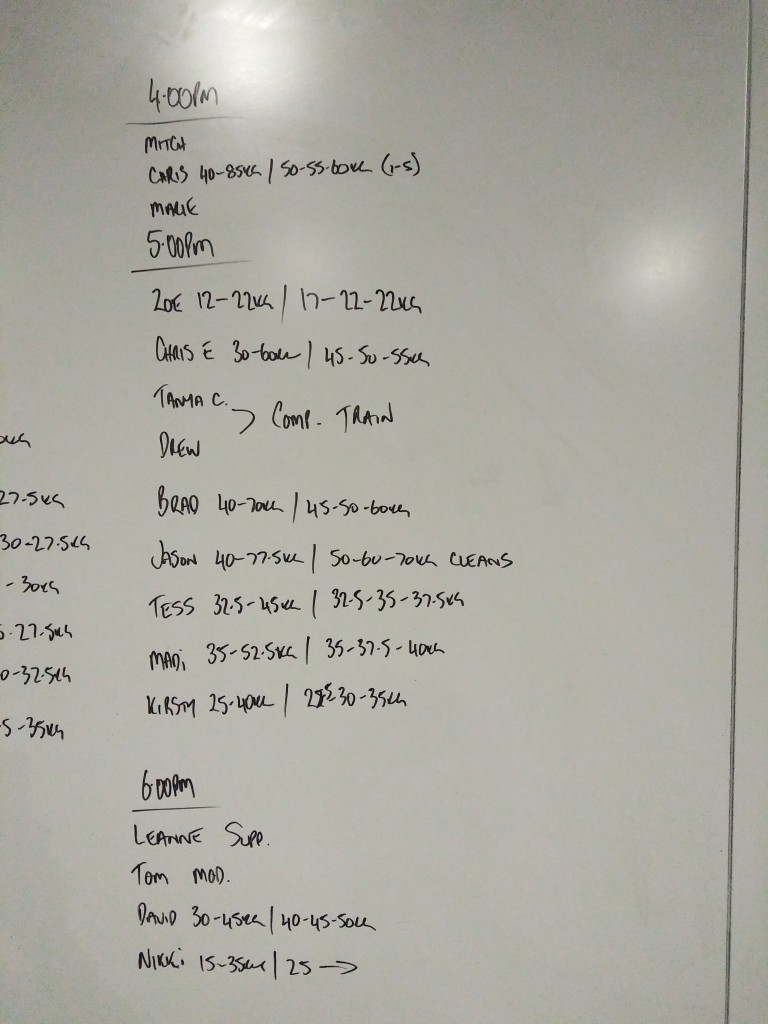 4.00PM
MITCH
CHRIS 40-85KG | 50-55-60KG (1-5)
5.00PM
ZOE 12-22KG | 17-22-22KG
CHRIS E 30-60KG | 45-50-55KG
TANYA C.
COMP. TRAIN
DREW
BRAD 40-70KG | 45-50-60KG
27.5KG
JASON 40-77.5KG | 50-60-70KG CLEANS
30-27.5KG
TESS 32.5-45KG | 32.5-35-37.5KG
-30KG
MADi 35-52.5KG | 35-37.5-40KG
27.5KG
KiRSTY 25-40KG | 30-35KG
0-32.5KG
5-35KG
6.00PM
LEANNE SUPP.
TOM MOD.
DAVID 30-45KG | 40-45-50KG
NIKKi 15-35KG | 25 →